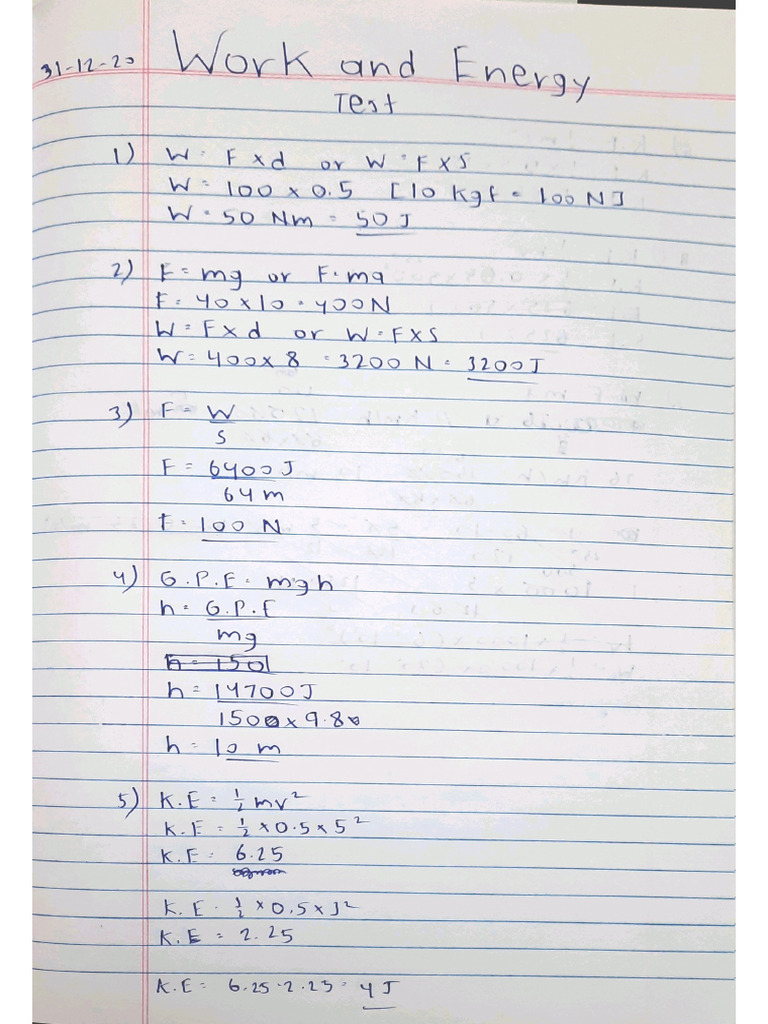 31-12-20
Work and Energy
Test
1) W = F x d or W = F x S
W = 100 x 0.5 [10 kgf = 100 N]
W = 50 Nm = 50 J
2) F = mg or F = ma
F = 40 x 10 = 400 N
W = F x d or W = F x S
W = 400 x 8 = 3200 N = 3200 J
3) F = W/S
F = 6400 J/64 m
F = 100 N
4) G.P.E = mgh
h = G.P.E/mg
h = 150
h = 14700 J/150 x 9.8
h = 10 m
5) K.E = ½ mv²
K.E = ½ x 0.5 x 5²
K.E = 6.25
K.E = ½ x 0.5 x 3²
K.E = 2.25
K.E = 6.25 - 2.25 = 4 J